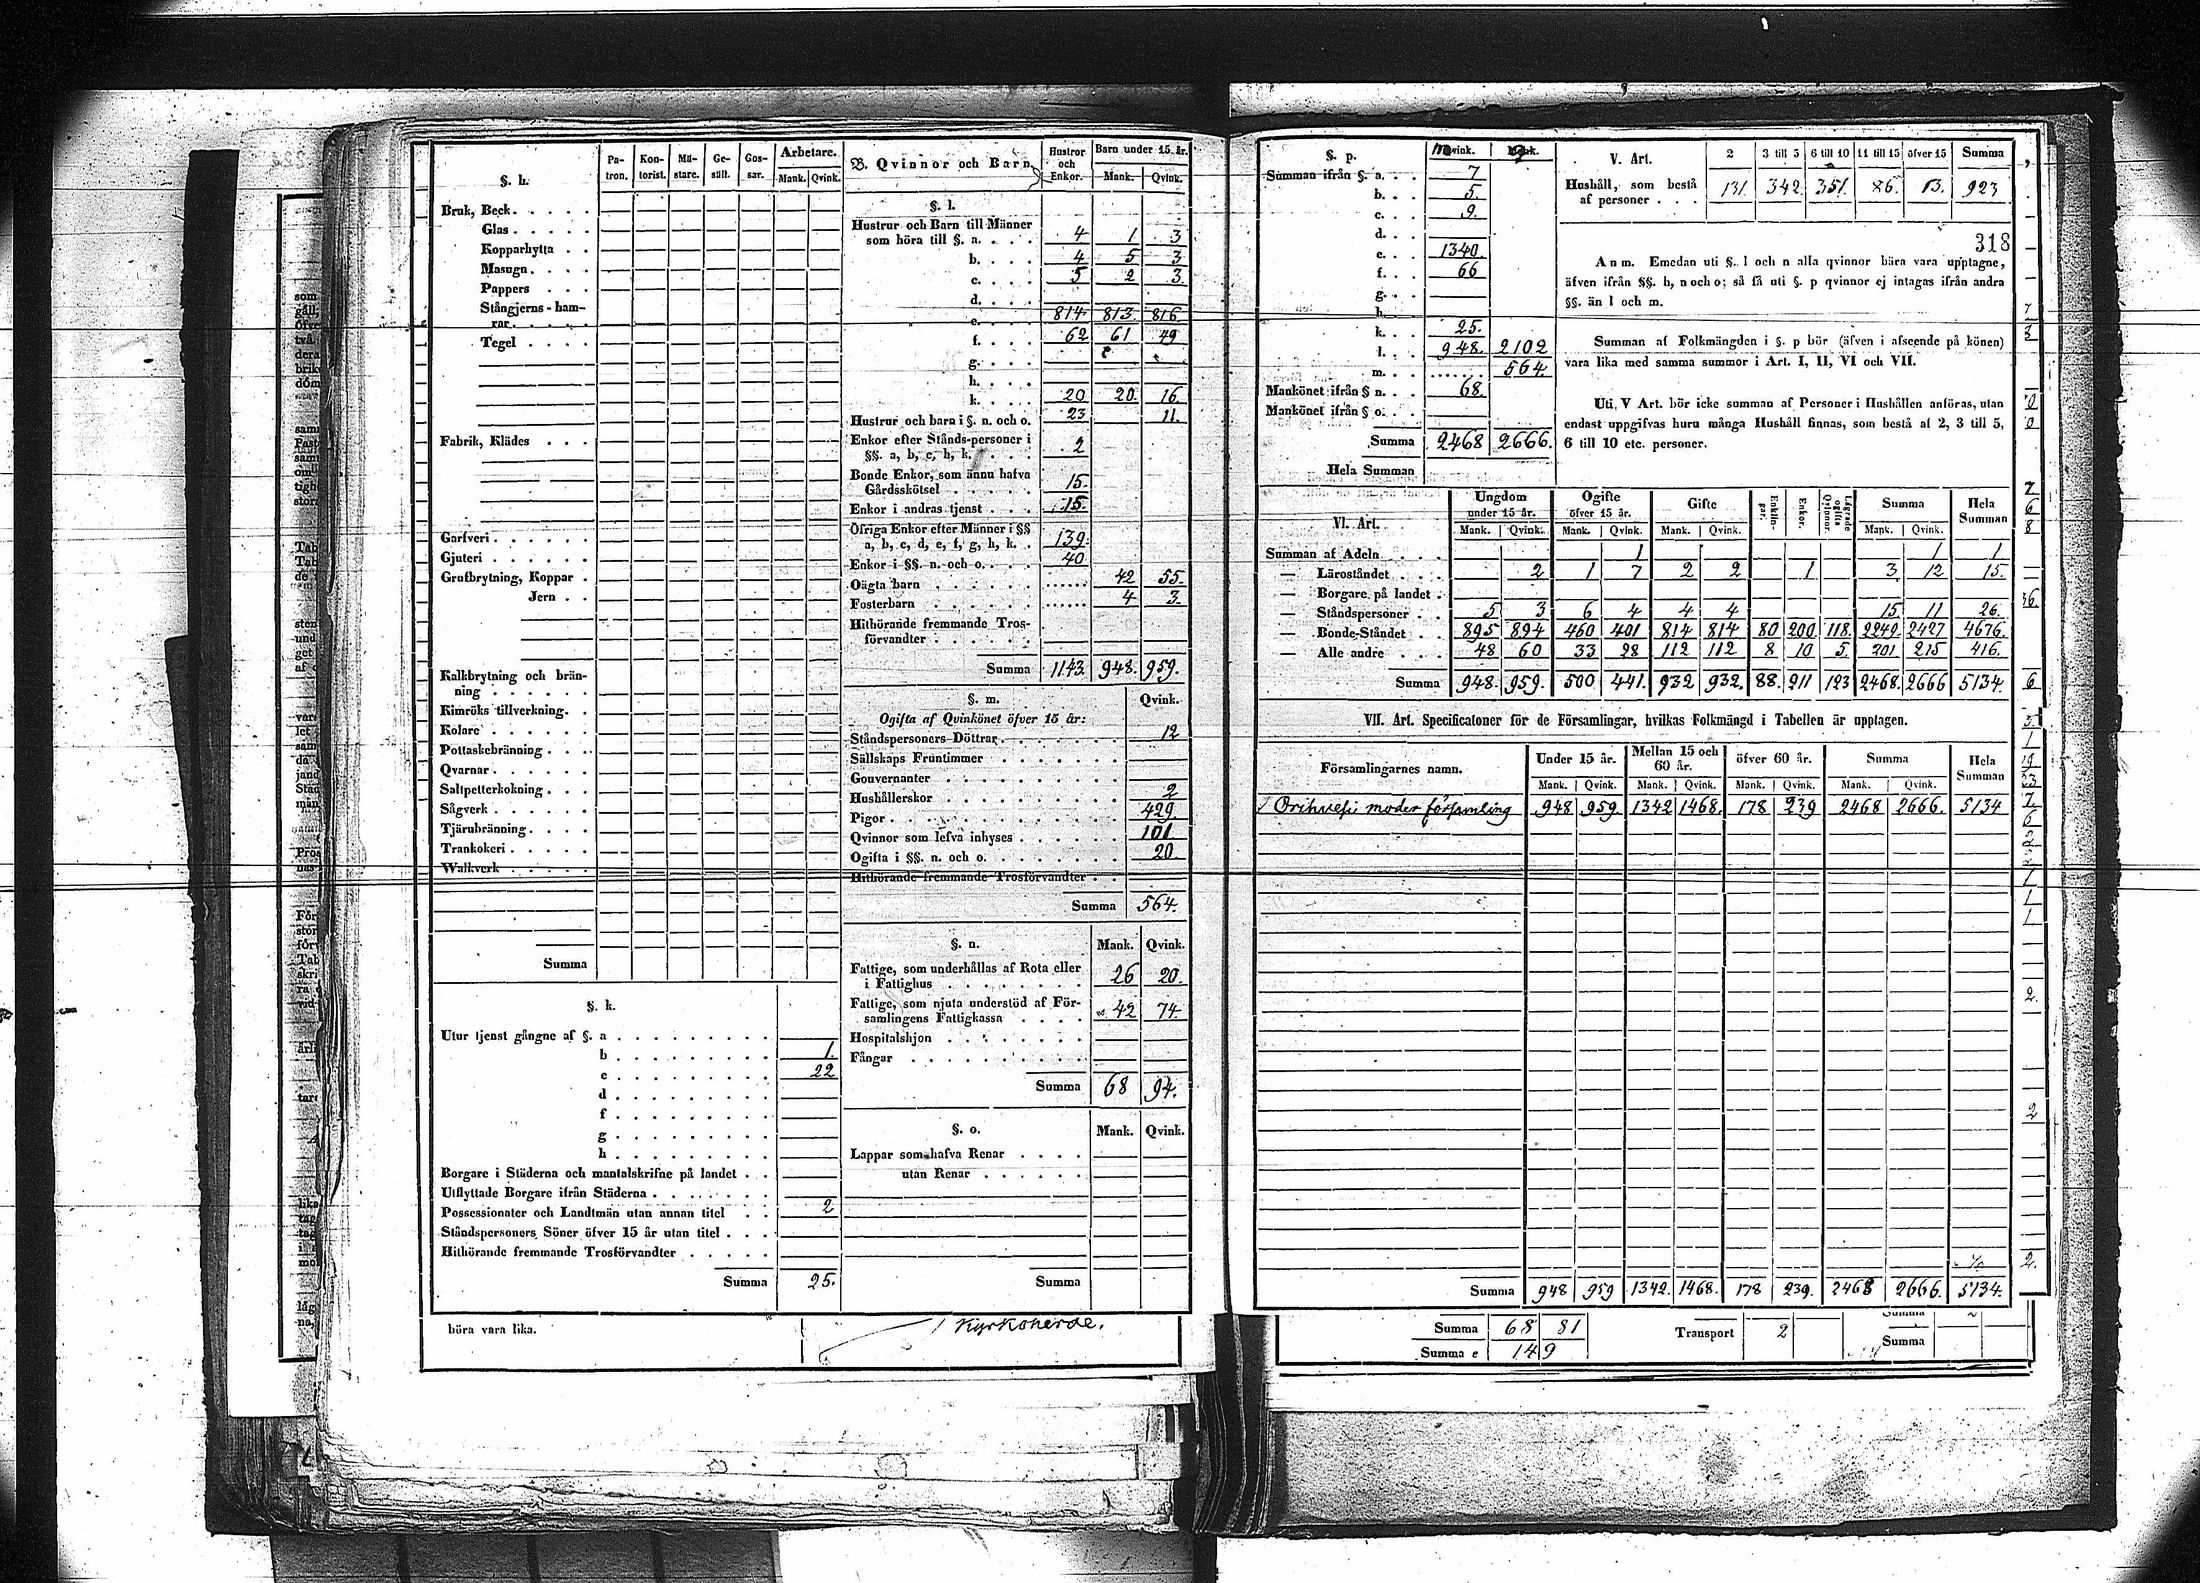 §. h.
Pa-tron. Kon-torist. Mä-stare. Ge-säll. Gos-sar. Arbetare. Mank. Qvink.
Bruk, Beck
Glas
Kopparhytta
Masugn
Pappers
Stångjerns-ham-
rar
Tegel
Fabrik, Klädes
Garfveri
Gjuteri
Grufbrytning, Koppar
Jern
Kalkbrytning och brän-
ning
Kimröks tillverkning.
Kolare
Pottaskebränning
Qvarnar
Saltpetterkokning
Sågverk
Tjärubränning
Trankokeri
Walkverk
Summa
§. k.
Utur tjenst gångne af §. a
b 1.
e 22
d
f
g
h
Borgare i Städerna och mantalskrifne på landet
Utflyttade Borgare ifrån Städerna
Possessionater och Landtmän utan annan titel 2
Ståndspersoners Söner öfver 15 år utan titel
Hithörande fremmande Trosförvandter
Summa 25.
B. Qvinnor och Barn. Hustror och Enkor. Barn under 15 år. Mank. Qvink.
§. l.
Hustrur och Barn till Männer
som höra till §. a. 4 1 3
b. 4 5 3
c. 5 2 3.
d.
e. 814 813 816
f. 62 61 49
g.
h.
k. 20 20. 16.
Hustrur och barn i §. n. och o. 23 11.
Enkor efter Stånds-personer i
§§. a, b, c, h, k. 2
Bonde Enkor, som ännu hafva
Gårdsskötsel 15.
Enkor i andras tjenst 15.
Öfriga Enkor efter Männer i §§
a, b, c, d, e, f, g, h, k. 139.
Enkor i §§. n. och o. 40
Oägta barn 42 55.
Fosterbarn 4 3.
Hithörande fremmande Tros-
förvandter
Summa 1143. 948. 959.
§. m. Qvink.
Ogifta af Qvinkönet öfver 15 år:
Ståndspersoners Döttrar 12
Sällskaps Fruntimmer
Gouvernanter
Hushållerskor 2
Pigor 429.
Qvinnor som lefva inhyses 101
Ogifta i §§. n. och o. 20.
Hithörande fremmande Trosförvandter
Summa 564.
§. n. Mank. Qvink.
Fattige, som underhållas af Rota eller
i Fattighus 26 20.
Fattige, som njuta understöd af För-
samlingens Fattigkassa 42 74
Hospitalshjon
Fångar
Summa 68 94.
§. o. Mank. Qvink.
Lappar som hafva Renar
utan Renar
Summa
böra vara lika.
Kyrkoherde.
§. p.
Summan ifrån §. a. 7
b. 5.
c. 9.
d.
e. 1340.
f. 66
g.
h.
k. 25.
l. 948. 2102
m. 564.
Mankönet ifrån § n. 68.
Mankönet ifrån § o.
Summa 2468 2666.
Hela Summan
V. Art. 2 3 till 5 6 till 10 11 till 15 öfver 15 Summa
Hushåll, som bestå
af personer 131. 342. 351. 86. 13. 923
318
Anm. Emedan uti §. l och n alla qvinnor böra vara upptagne,
äfven ifrån §§. h, n och o; så få uti §. p qvinnor ej intagas ifrån andra
§§. än l och m.
Summan af Folkmängden i §. p bör (äfven i afseende på könen)
vara lika med samma summor i Art. I, II, VI och VII.
Uti V Art. bör icke summan af Personer i Hushållen anföras, utan
endast uppgifvas huru många Hushåll finnas, som bestå af 2, 3 till 5,
6 till 10 etc. personer.
VI. Art. Ungdom under 15 år. Ogifte öfver 15 år. Gifte Enklin-gar. Enkor. Lägrade ogifta Qvinnor Summa Hela Summan
Mank. Qvink. Mank. Qvink. Mank. Qvink. Mank. Qvink.
Summan af Adeln 1 1 1
— Läroståndet 2 1 7 2 2 1 3. 12 15.
— Borgare på landet
— Ståndspersoner 5 3 6 4 4 4 15 11 26.
— Bonde-Ståndet 895 894 460 401 814 814 80 200 118. 2249. 2427 4676.
— Alle andre 48 60 33 28 112 112 8 10 5. 201 215 416.
Summa 948. 959. 500 441. 932 932. 88. 211 123 2468. 2666 5134.
VII. Art. Specificatoner för de Församlingar, hvilkas Folkmängd i Tabellen är upptagen.
Församlingarnes namn. Under 15 år. Mellan 15 och 60 år. öfver 60 år. Summa Hela Summan
Mank. Qvink. Mank. Qvink. Mank. Qvink. Mank. Qvink.
Orihvesi moder församling 948 959. 1342 1468. 178 239 2468 2666. 5134
Summa 948 959 1342. 1468. 178 239. 2468 2666. 5134.
Summa 68 81 Transport 2 Summa
Summa e 149